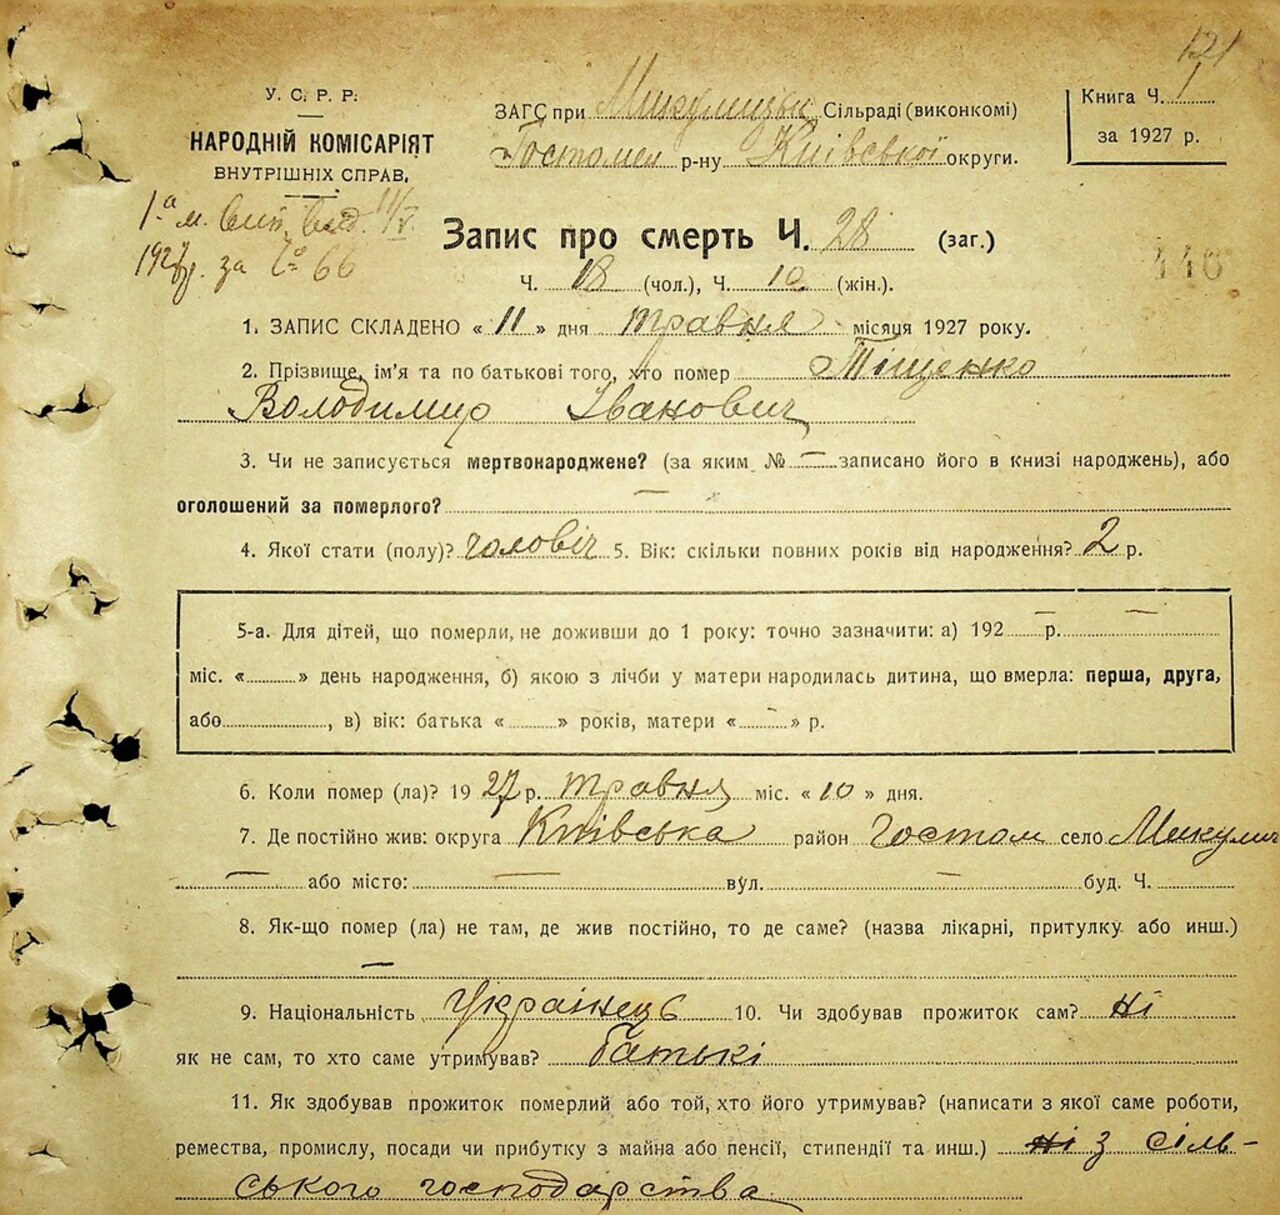 121
У. С. Р. Р.
НАРОДНІЙ КОМІСАРІЯТ
ВНУТРІШНІХ СПРАВ.
ЗАГС при Микулицьк. Сільраді (виконкомі)
Гостомел р-ну Київської округи.
Книга Ч. 1
за 1927 р.
1-а м. вип. вид. 11/V.
1927 р. за № 66
Запис про смерть Ч. 28 (заг.)
446
Ч. 18 (чол.), Ч. 10 (жін.).
1. ЗАПИС СКЛАДЕНО « 11 » дня травня місяця 1927 року.
2. Прізвище, ім'я та по батькові того, хто помер Тіщенко
Володимир Іванович
3. Чи не записується мертвонароджене? (за яким № — записано його в книзі народжень), або
оголошений за померлого? —
4. Якої стати (полу)? чоловіч 5. Вік: скільки повних років від народження? 2 р.
5-а. Для дітей, що померли, не доживши до 1 року: точно зазначити: а) 192 — р. —
міс. « » день народження, б) якою з лічби у матери народилась дитина, що вмерла: перша, друга,
або , в) вік: батька « » років, матери « — » р.
6. Коли помер (ла)? 19 27 р. травня міс. « 10 » дня.
7. Де постійно жив: округа Київська район Гостом село Микулич
— або місто: — вул. — буд. Ч.
8. Як-що помер (ла) не там, де жив постійно, то де саме? (назва лікарні, притулку або инш.)
—
9. Національність Українець 10. Чи здобував прожиток сам? ні
як не сам, то хто саме утримував? батькі
11. Як здобував прожиток померлий або той, хто його утримував? (написати з якої саме роботи,
ремества, промислу, посади чи прибутку з майна або пенсії, стипендії та инш.) ні з сіль-
ського господарства